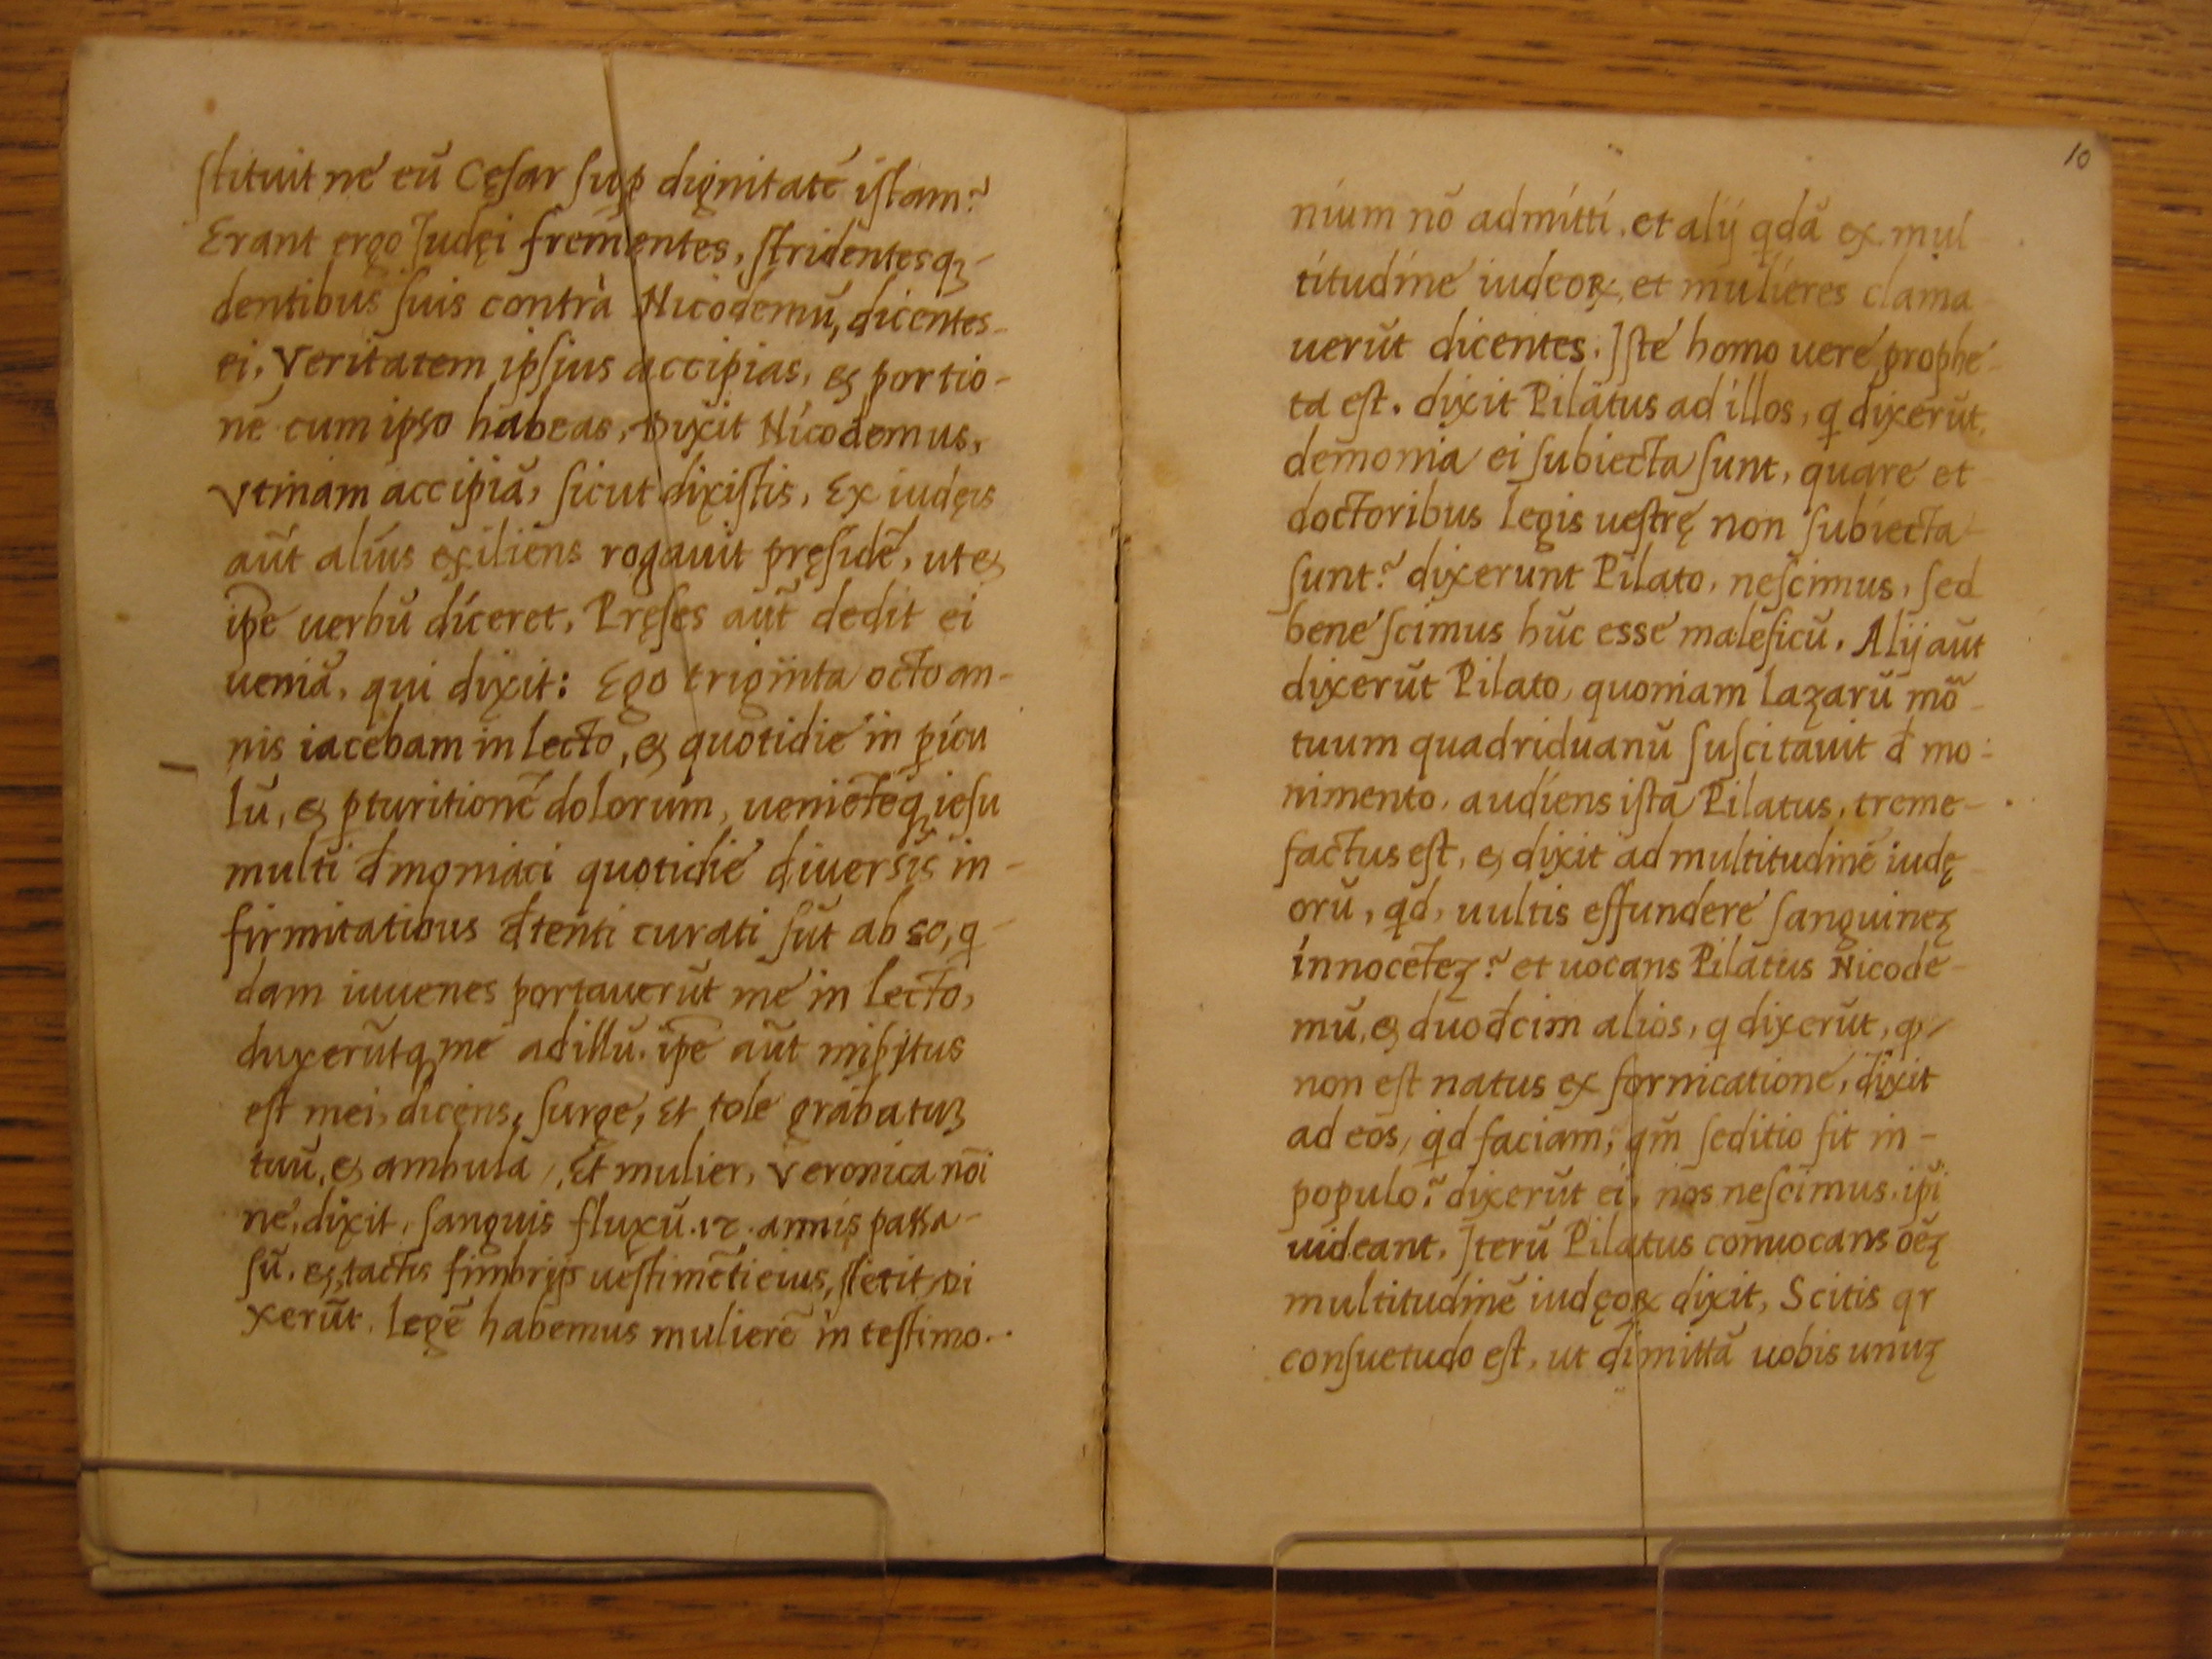 stituit ne eū Cęsar sup̱ dignitatē istam?
Erant ergo Iudęi frementes, stridentesq3
dentibus suis contrà Nicodemū, dicentes-
ei, Veritatem ipsius accipias, & portio-
nē cum ipso habeas, Dixit Nicodemus,
Vtinam accipiā, sicut dixistis, Ex iudęis
aūt alius exiliens rogauit pręsidē, ut &
ip̄e uerbū diceret, Pręses aūt dedit ei
ueniā, qui dixit: Ego triginta octo an-
nis iacebam in lecto, & quotidie in p̱icu
lū, & p̱turitionē dolorum, ueniēteq3 iesu
multi d̄moniaci quotidie diuersis in-
firmitatibus d̄tenti curati sūt ab eo, q-
dam iuuenes portauerūt me in lecto,
duxerūtq3 me ad illū. ip̄e aūt mis̄tus
est mei, dicens, surge, Et tole grabatu3
tuū, & ambula, Et mulier, Veronica nōi
ne, dixit, sanguis fluxū .12. annis passa-
sū. & tactis fimbrijs uestimēti eius, stetit, Di
xerūt. legē habemus mulierē in testimo..
10
nium nō admitti. et alij qdā ex mul-
titudine iudeoꝝ, et mulieres clama
uerūt dicentes. Iste homo uere prophe-
ta est. dixit Pilatus ad illos, q dixerūt,
demonia ei subiecta sunt, quare et
doctoribus legis uestrę non subiecta
sunt? dixerunt Pilato, nescimus, sed
bene scimus hūc esse maleficū. Alij aūt
dixerūt Pilato, quoniam lazarū mō-
tuum quadriduanū suscitauit d̄ mo:
nimento, audiens ista Pilatus, treme-
factus est, & dixit ad multitudinē iudę
orū, qd, uultis effundere sanguine3
innocēte3? et uocans Pilatus Nicode-
mū, & duod̄cim alios, q dixerūt, q̱
non est natus ex fornicatione, dixit
ad eos, qd faciam, qm̄ seditio fit in-
populo? dixerūt ei, nos nescimus, ip̄i
uideant. Iterū Pilatus conuocans oē3
multitudinē iudęoꝝ dixit, Scitis qr
consuetudo est, ut dimittā uobis unu3